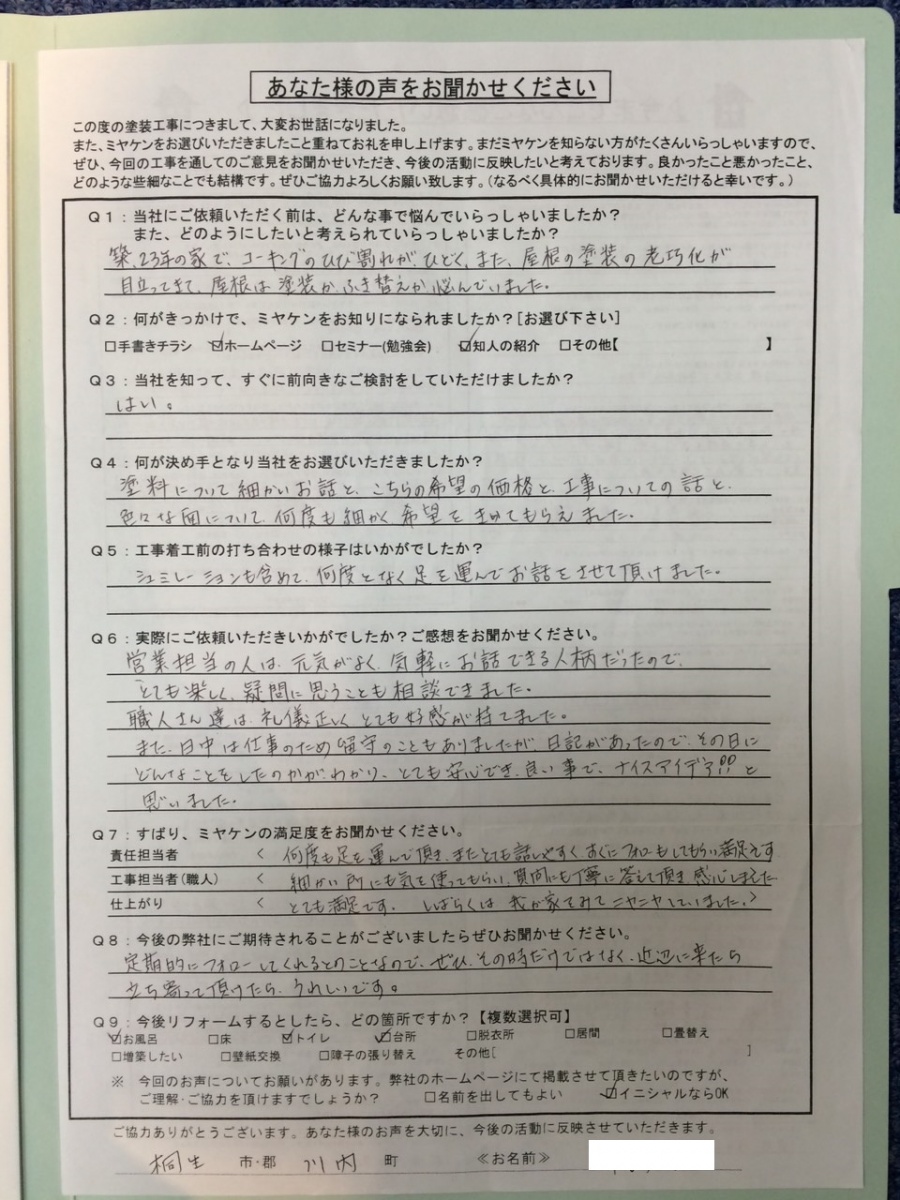 あなた様の声をお聞かせください
この度の塗装工事につきまして、大変お世話になりました。
また、ミヤケンをお選びいただきましたこと重ねてお礼を申し上げます。まだミヤケンを知らない方がたくさんいらっしゃいますので、
ぜひ、今回の工事を通してのご意見をお聞かせいただき、今後の活動に反映したいと考えております。良かったこと悪かったこと、
どのような些細なことでも結構です。ぜひご協力よろしくお願い致します。（なるべく具体的にお聞かせいただけると幸いです。）
Q1：当社にご依頼いただく前は、どんな事で悩んでいらっしゃいましたか？
また、どのようにしたいと考えられていらっしゃいましたか？
築、23年の家で、コーキングのひび割れが、ひどく、また、屋根の塗装の老巧化が
目立ってきて、屋根は塗装か、ふき替えか悩んでいました。
Q2：何がきっかけで、ミヤケンをお知りになられましたか？[お選び下さい]
□手書きチラシ ☑ホームページ □セミナー(勉強会) ☑知人の紹介 □その他【 】
Q3：当社を知って、すぐに前向きなご検討をしていただけましたか？
はい。
Q4：何が決め手となり当社をお選びいただきましたか？
塗料について細かいお話と、こちらの希望の価格と、工事についての話と、
色々な面について、何度も細かく希望をきめてもらえました。
Q5：工事着工前の打ち合わせの様子はいかがでしたか？
シュミレーションも含めて、何度となく足を運んでお話をさせて頂けました。
Q6：実際にご依頼いただきいかがでしたか？ご感想をお聞かせください。
営業担当の人は、元気がよく、気軽にお話できる人柄だったので、
とても楽しく、疑問に思うことも相談できました。
職人さん達は、礼儀正しく、とても好感が持てました。
また、日中は仕事のため留守のこともありましたが、日記があったので、その日に
どんなことをしたのかが、わかり、とても安心でき、良い事で、ナイスアイデア!!と
思いました。
Q7：ずばり、ミヤケンの満足度をお聞かせください。
責任担当者 〈 何度も足を運んで頂き、またとても話しやすく、すぐにフォローもしてもらい満足です
工事担当者(職人) 〈 細かい所にも気を使ってもらい、質問にも丁寧に答えて頂き感心しました
仕上がり 〈 とても満足です。 しばらくは我が家をみてニヤニヤしていました。〉
Q8：今後の弊社にご期待されることがございましたらぜひお聞かせください。
定期的にフォローしてくれるとのことなので、ぜひ、その時だけではなく、近辺に来たら
立ち寄って頂けたら、うれしいです。
Q9：今後リフォームするとしたら、どの箇所ですか？【複数選択可】
☑お風呂 □床 ☑トイレ ☑台所 □脱衣所 □居間 □畳替え
□増築したい □壁紙交換 □障子の張り替え その他[ ]
※ 今回のお声についてお願いがあります。弊社のホームページにて掲載させて頂きたいのですが、
ご理解・ご協力を頂けますでしょうか？ □名前を出してもよい ☑イニシャルならOK
ご協力ありがとうございます。あなた様のお声を大切に、今後の活動に反映させていただきます。
桐生 市・郡 川内 町 ≪お名前≫